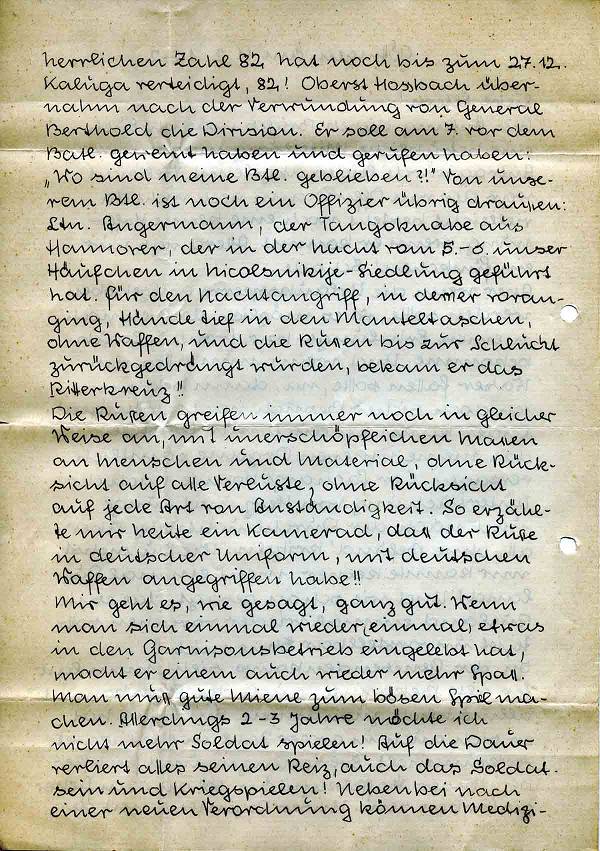 herrlichen Zahl 82 hat noch bis zum 27.12.
Kaluga verteidigt, 82! Oberst Hossbach über-
nahm nach der Verwundung von General
Berthold die Division. Er soll am 7. vor dem
Batl. geweint haben und gerufen haben:
„Wo sind meine Btl. geblieben?!" Von unse-
rem Btl. ist noch ein Offizier übrig draußen:
Ltn. Angermann, der Tangoknabe aus
Hannover, der in der Nacht vom 5.-6. unser
Häufchen in Nicolsnikije-Siedlung geführt
hat. Für den Nachtangriff, in dem er voran-
ging, Hände tief in den Manteltaschen,
ohne Waffen, und die Russen bis zur Schlucht
zurückgedrängt wurden, bekam er das
Ritterkreuz!!
Die Russen greifen immer noch in gleicher
Weise an, mit unerschöpflichen Massen
an Menschen und Material, ohne Rück-
sicht auf alle Verluste, ohne Rücksicht
auf jede Art von Anständigkeit. So erzähl-
te mir heute ein Kamerad, daß der Russe
in deutscher Uniform, mit deutschen
Waffen angegriffen habe!!
Mir geht es, wie gesagt, ganz gut. Wenn
man sich einmal wieder, einmal, etwas
in den Garnisonsbetrieb eingelebt hat,
macht er einem auch wieder mehr Spaß.
Man muß gute Miene zum bösen Spiel ma-
chen. Allerdings 2-3 Jahre möchte ich
nicht mehr Soldat spielen! Auf die Dauer
verliert alles seinen Reiz, auch das Soldat-
sein und Kriegspielen! Nebenbei nach
einer neuen Verordnung können Medizi-